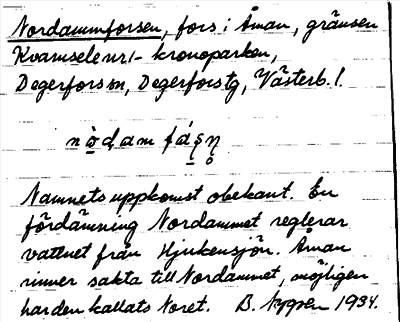 Nordammforsen, fors i Åman, gränsen
Kvarnsele nr1 - kronoparken,
Degerfors sn, Degerfors tg, Västerb. l.
Namnets uppkomst obekant. En
fördämning Nordammet reglerar
vattnet från Hjukensjön. Åman
rinner sakta till Nordammet, möjligen
har den kallats Noret. B. Nygren 1934.